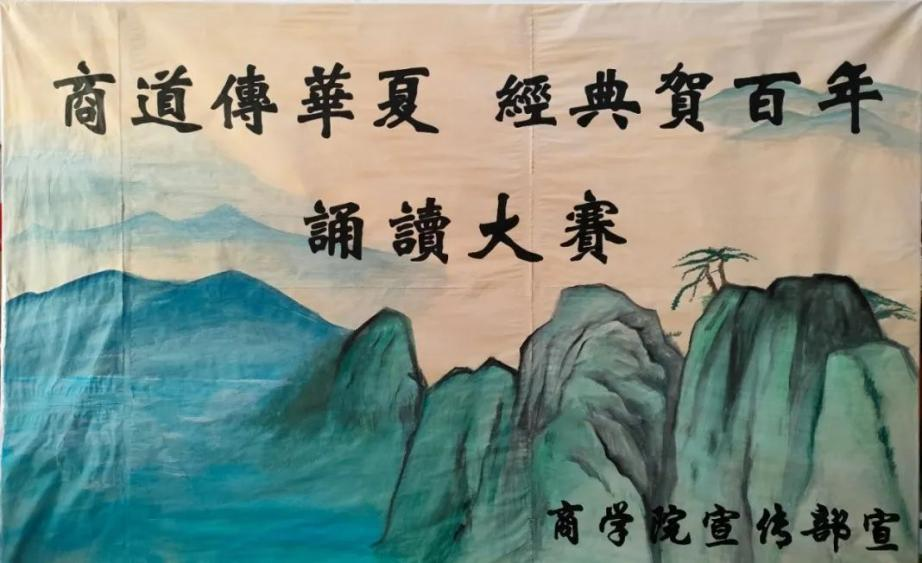 商道傳華夏 經典賀百年
誦讀大賽
商学院宣传部宣